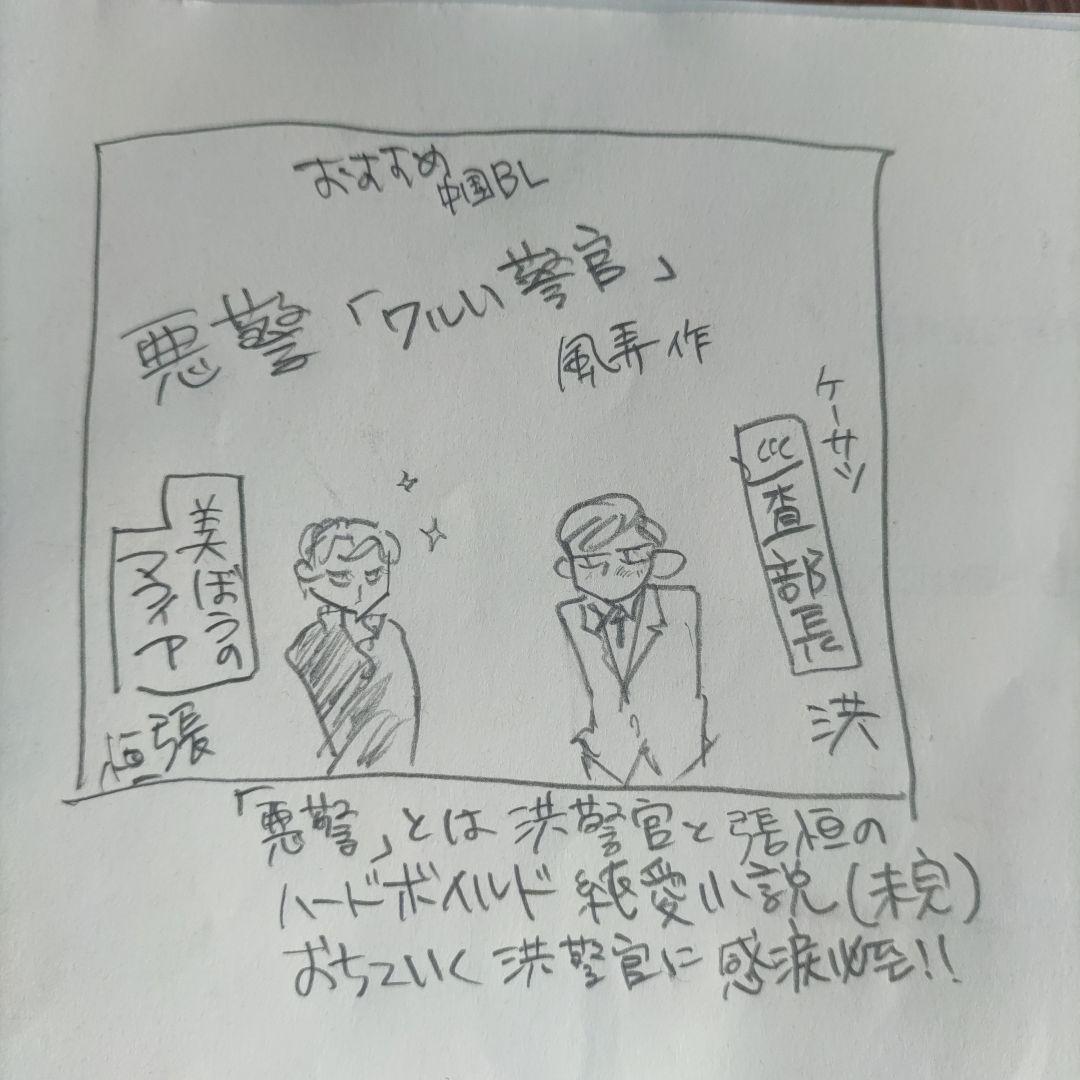 おすすめ
中国BL
悪警「ワルい警官」
風弄作
ケーサツ
巡査部長
洪
美ぼうの
マフィア
張
恒
「悪警」とは洪警官と張恒の
ハードボイルド純愛小説(未完)
おちていく洪警官に感涙必至!!